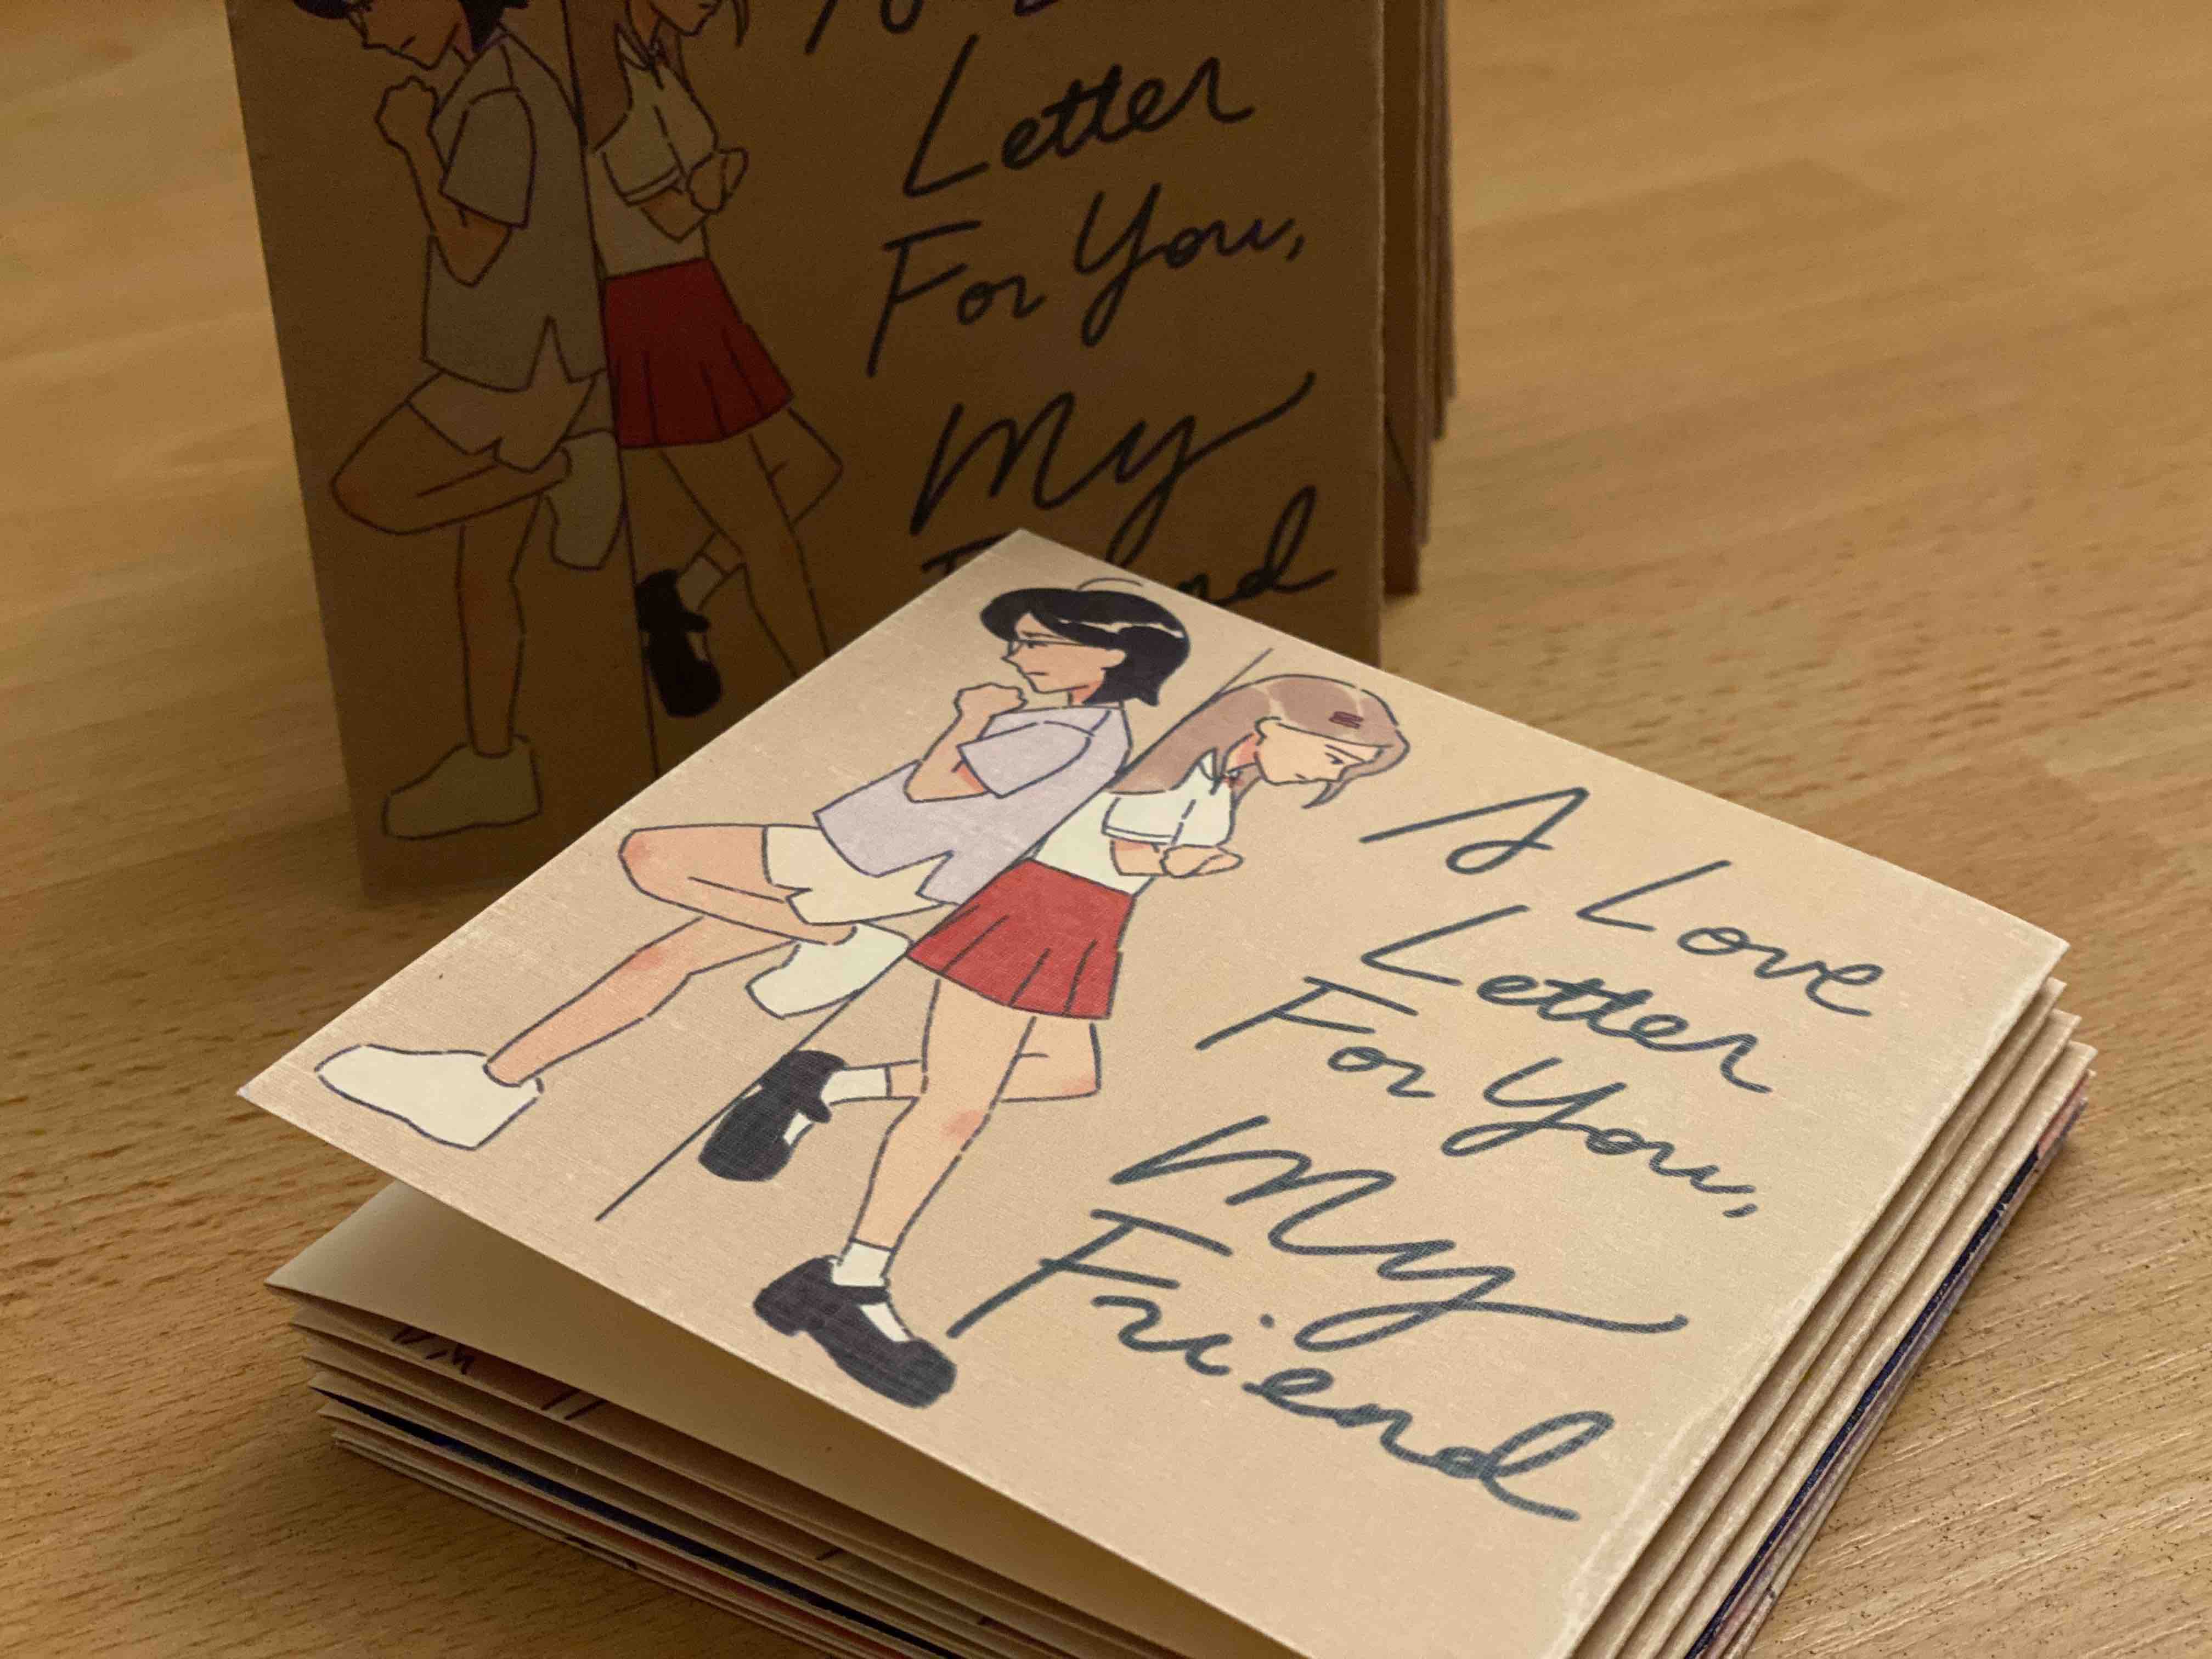 Letter
For You,
My
A Love
Letter
For You,
My
Friend